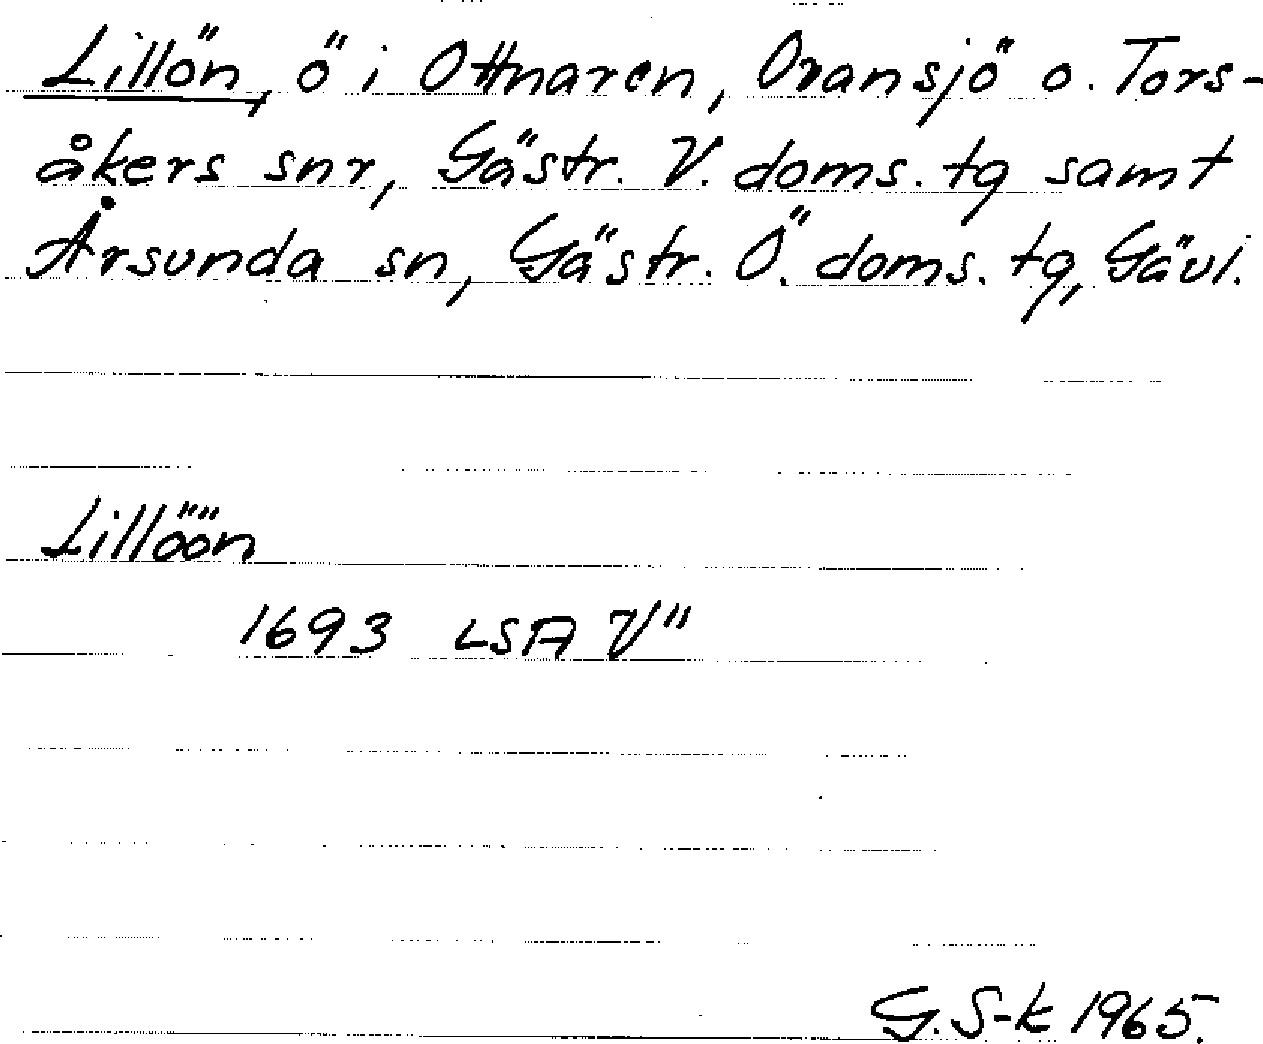 Lillön, ö i Ottnaren, Ovansjö o. Tors-
åkers snr, Gästr. V. doms. tg samt
Årsunda sn, Gästr. Ö. doms. tg, Gävl.
Lillöön
1693 LSA V"
G. S-k 1965.